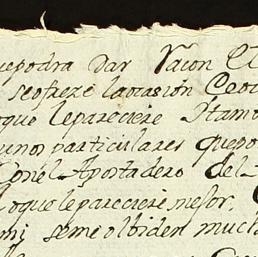 uepodra dar racon El
seofreze laocasion Ceo
oque lepareciere Ytam
unos particulares quepo
Conel Aportadero del
loque lepareciere mejor,
mi seme olbiden much